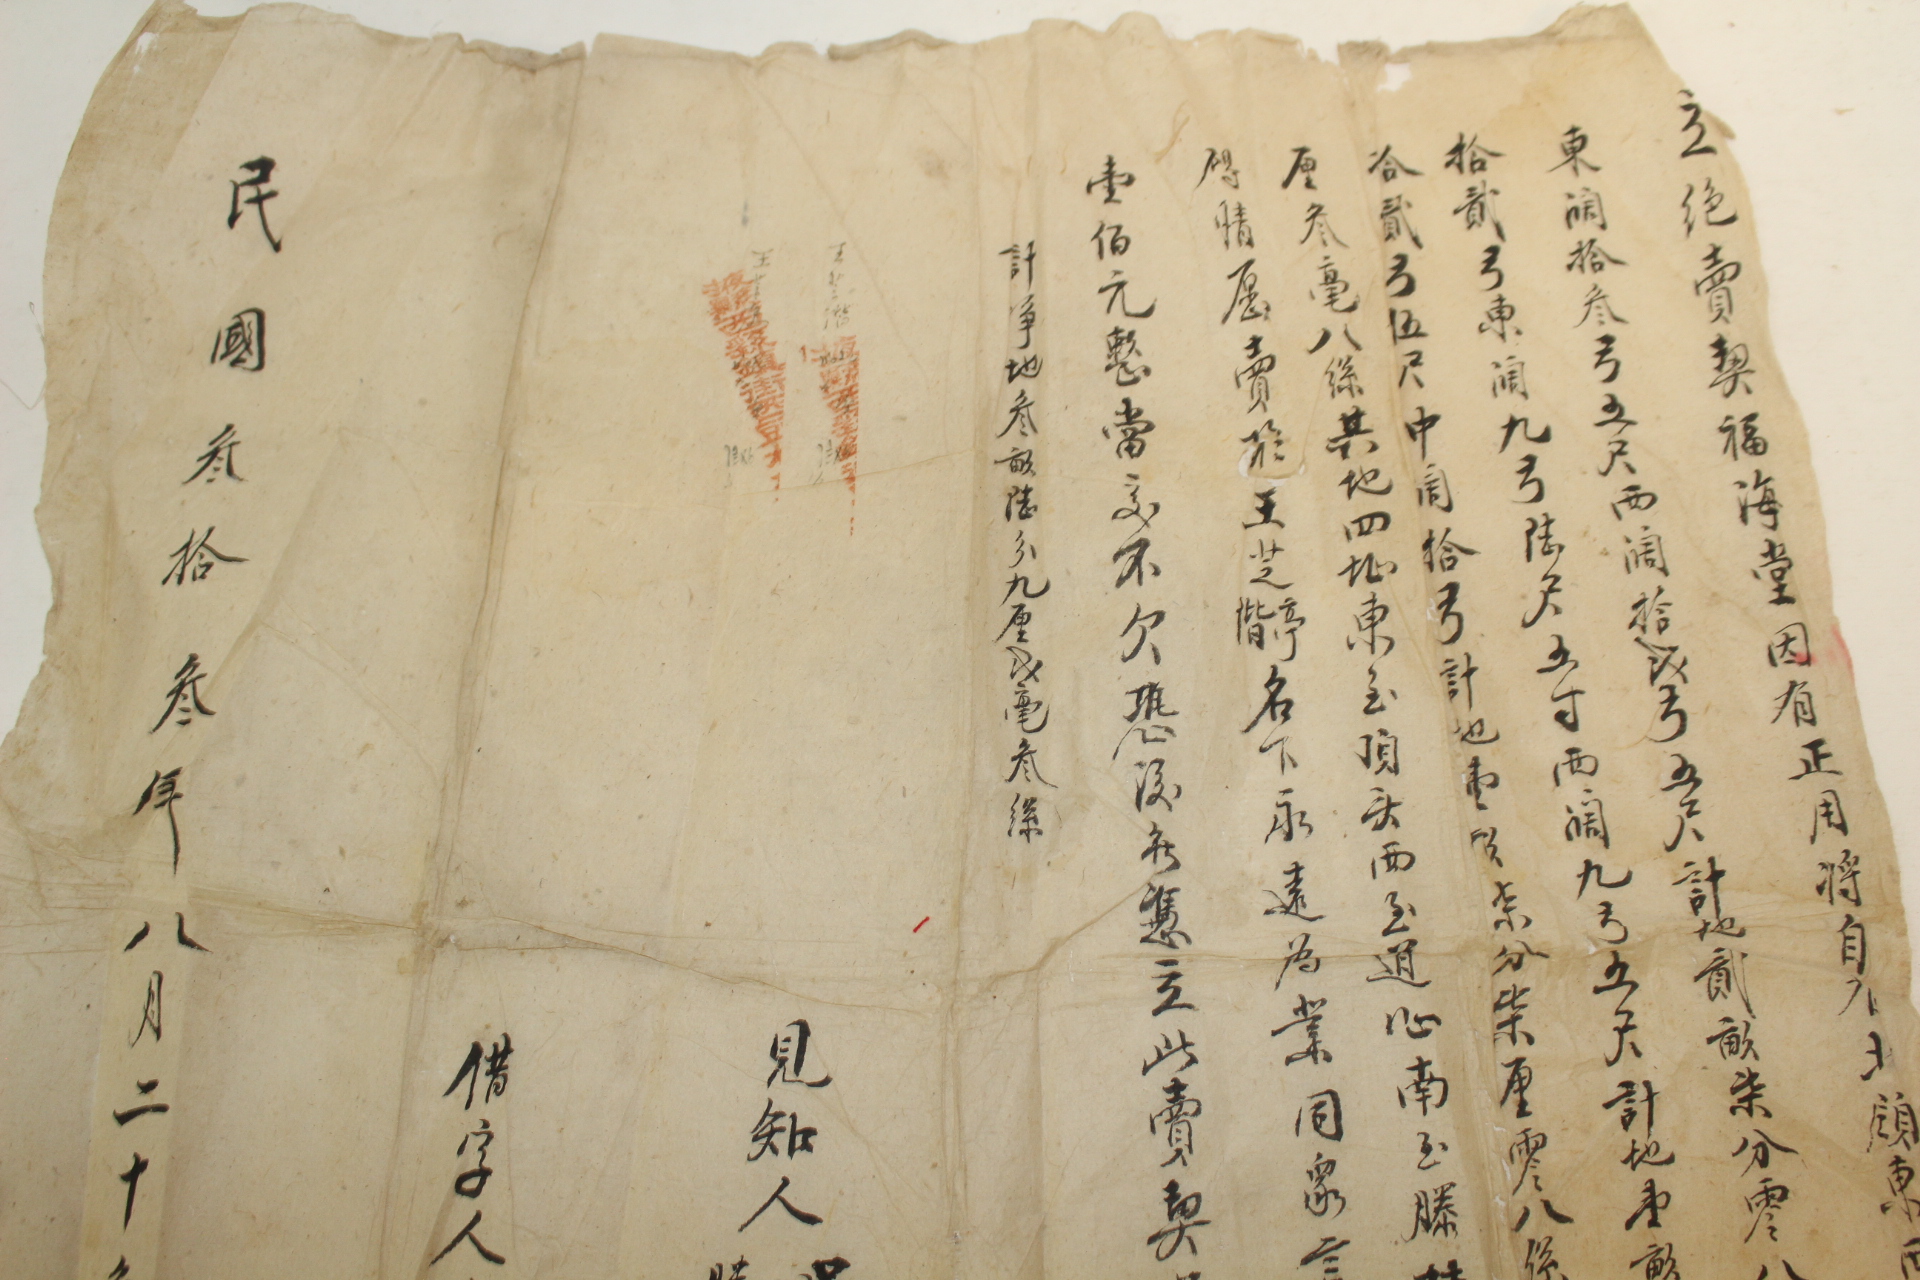 立絕賣契福海堂因有正用將自
東闊拾叁弓五尺西闊拾弍弓五尺計地貳畝柒分零八
拾貳弓東闊九弓陆尺五寸西闊九弓五尺計地壹畝
合貳弓伍尺中闊拾弓計地壹畝柒分柒厘零八絲
厘叁毫八絲其地四址東至頂头西至道心南至滕
情愿賣於王芝階亭名下永遠為業同眾言
壹佰元整當交不欠恐後無憑立此賣契
計淨地叁畝陆分九厘弍毫叁絲
見知人
借字人
民國叁拾叁年八月二十